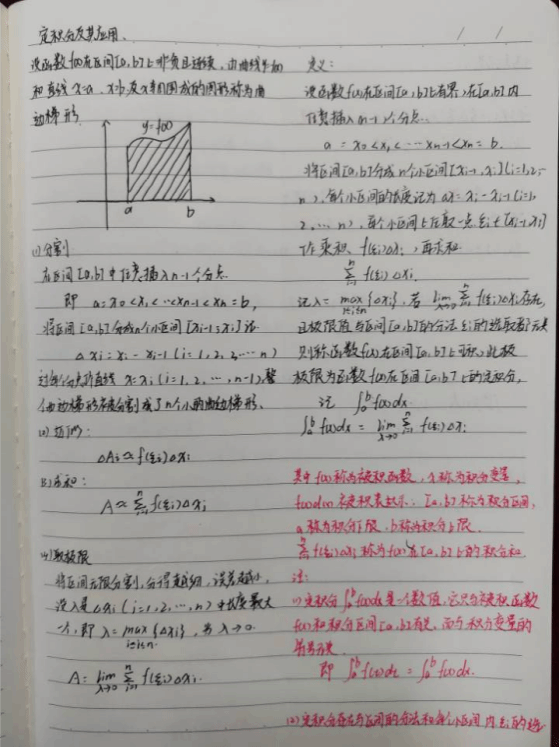 定积分及其应用.
设函数f(x)在区间[a,b]上非负且连续,由曲线y=f(x)
和直线x=a、x=b及x轴围成的图形称为曲
边梯形.
y=f(x)
a
b
(1)分割
在区间[a,b]中任意插入n-1个分点
即 a=x₀<x₁<…<xₙ₋₁<xₙ=b,
将区间[a,b]分成n个小区间[xᵢ₋₁,xᵢ]记
Δxᵢ=xᵢ-xᵢ₋₁(i=1,2,…n)
过每个分点作直线x=xᵢ(i=1,2,…,n-1),整
个曲边梯形被分割成了n个小的曲边梯形.
(2)近似:
ΔAᵢ≈f(ξᵢ)Δxᵢ
(3)求和:
A≈∑ⁿᵢ₌₁f(ξᵢ)Δxᵢ
(4)取极限
将区间无限分割,分得越细,误差越小,
设λ是Δxᵢ(i=1,2,…,n)中长度最大
一个,即λ=max{Δxᵢ}, λ→0.
1≤i≤n
A=lim ∑ⁿᵢ₌₁f(ξᵢ)Δxᵢ.
λ→0
定义:
设函数f(x)在区间[a,b]上有界,在[a,b]内
任意插入n-1个分点
a=x₀<x₁<…xₙ₋₁<xₙ=b.
将区间[a,b]分成n个小区间[xᵢ₋₁,xᵢ](i=1,2,…
n),每个小区间的长度记为Δx=xᵢ-xᵢ₋₁(i=1,
2,…,n),每个小区间上任取一点ξᵢ∈[xᵢ₋₁,xᵢ]
作乘积f(ξᵢ)Δxᵢ,再求和
∑ⁿᵢ₌₁f(ξᵢ)Δxᵢ
记λ=max{Δxᵢ},若lim ∑ⁿᵢ₌₁f(ξᵢ)Δxᵢ存在,
1≤i≤n
且极限值与区间[a,b]的分法ξᵢ的选取都无关
则称函数f(x)在区间[a,b]上可积,此极
极限为函数f(x)在区间[a,b]上的定积分,
记 ∫ₐᵇf(x)dx
∫ₐᵇf(x)dx=lim ∑ⁿᵢ₌₁f(ξᵢ)Δxᵢ
λ→0
其中f(x)称为被积函数,x称为积分变量,
f(x)dx被积表达式,[a,b]称为积分区间,
a称为积分下限,b称为积分上限.
∑ⁿᵢ₌₁f(ξᵢ)Δxᵢ称为f(x)在[a,b]上的积分和.
注:
(1)定积分∫ₐᵇf(x)dx是一个数值,它只与被积函数
f(x)和积分区间[a,b]有关,而与积分变量的
符号无关.
即 ∫ₐᵇf(x)dx=∫ₐᵇf(u)du.
(2)定积分存在与区间的分法和每个小区间内ξᵢ的选